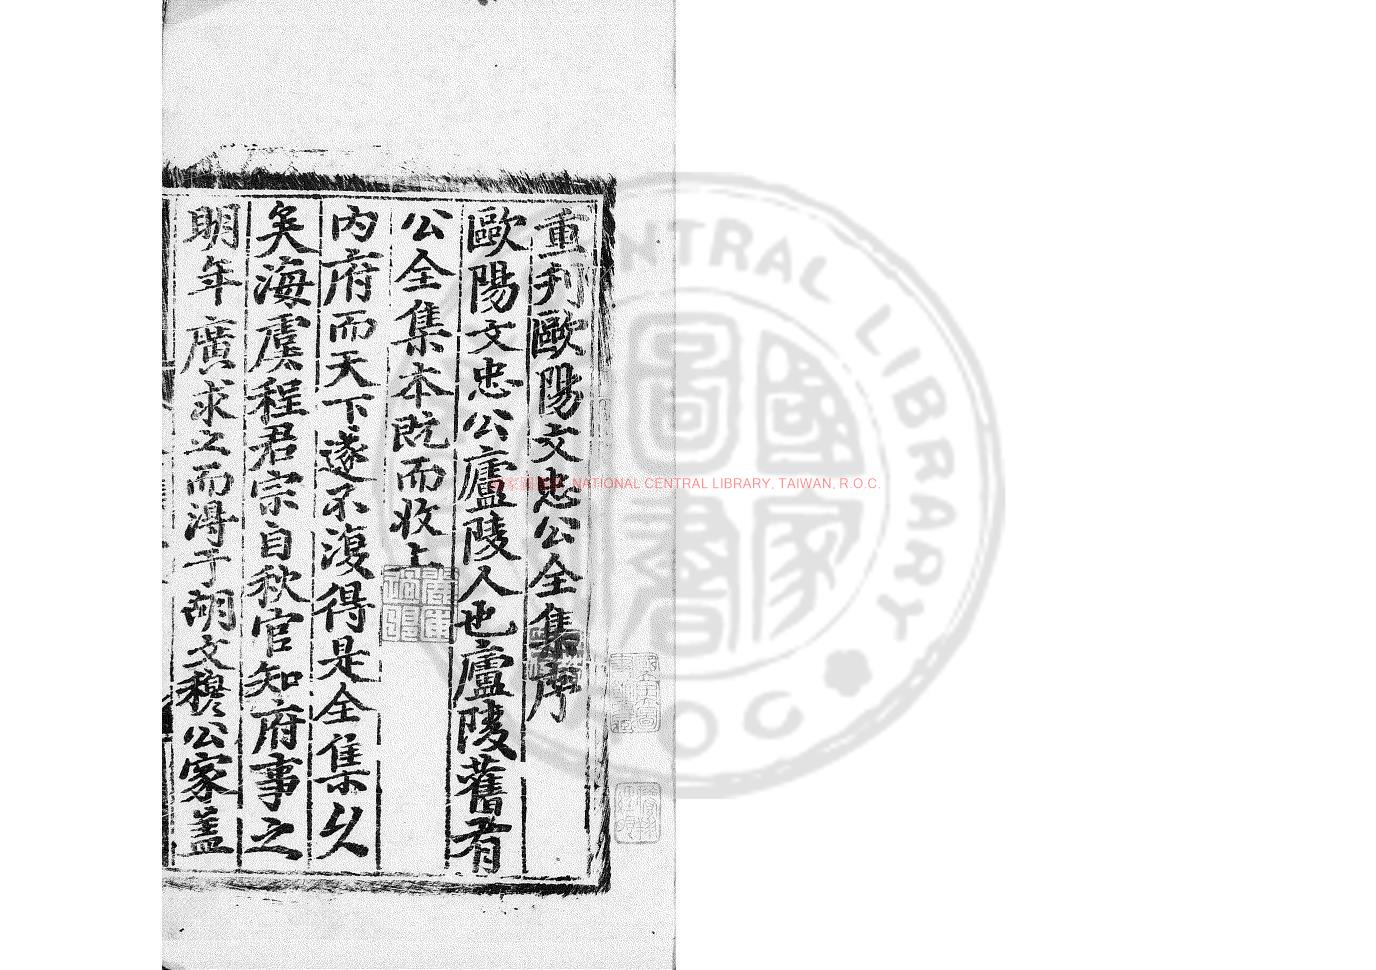 重刋歐陽文忠公全集序
歐陽文忠公廬陵人也廬陵舊有
公全集本既而收上
内府而天下遂不復得是全集久
矣海虞程君宗自秋官知府事之
明年廣求之而得于胡文穆公家葢
NATIONAL CENTRAL LIBRARY, TAIWAN, R.O.C.
CENTRAL LIBRARY
國家圖書